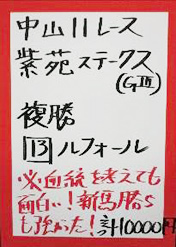 中山11レース
紫苑ステークス
(GⅢ)
複勝
13 ルフォール
※血統を考えても
面白い!新馬勝ち
も強かった!計10000円